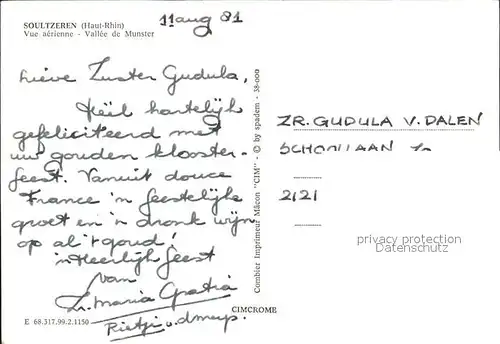 SOULTZEREN (Haut-Rhin)
Vue aérienne - Vallée de Munster
11 aug 81
Lieve Zuster Gudula,
Héél hartelijk
gefeliciteerd met
uw gouden klooster-
feest. Vanuit douce
France 'n feestelijke
groet en 'n dronk wijn
op al 't goud!
'n Heerlijk feest
van
Zr. Maria Gratia
Rietji v.d.
E 68.317.99.2.1150
CIMCROME
Combier Imprimeur Mâcon "CIM" - © by spadem - 38-000
ZR. GUDULA V. DALEN
2121
privacy protection
oldthing.com